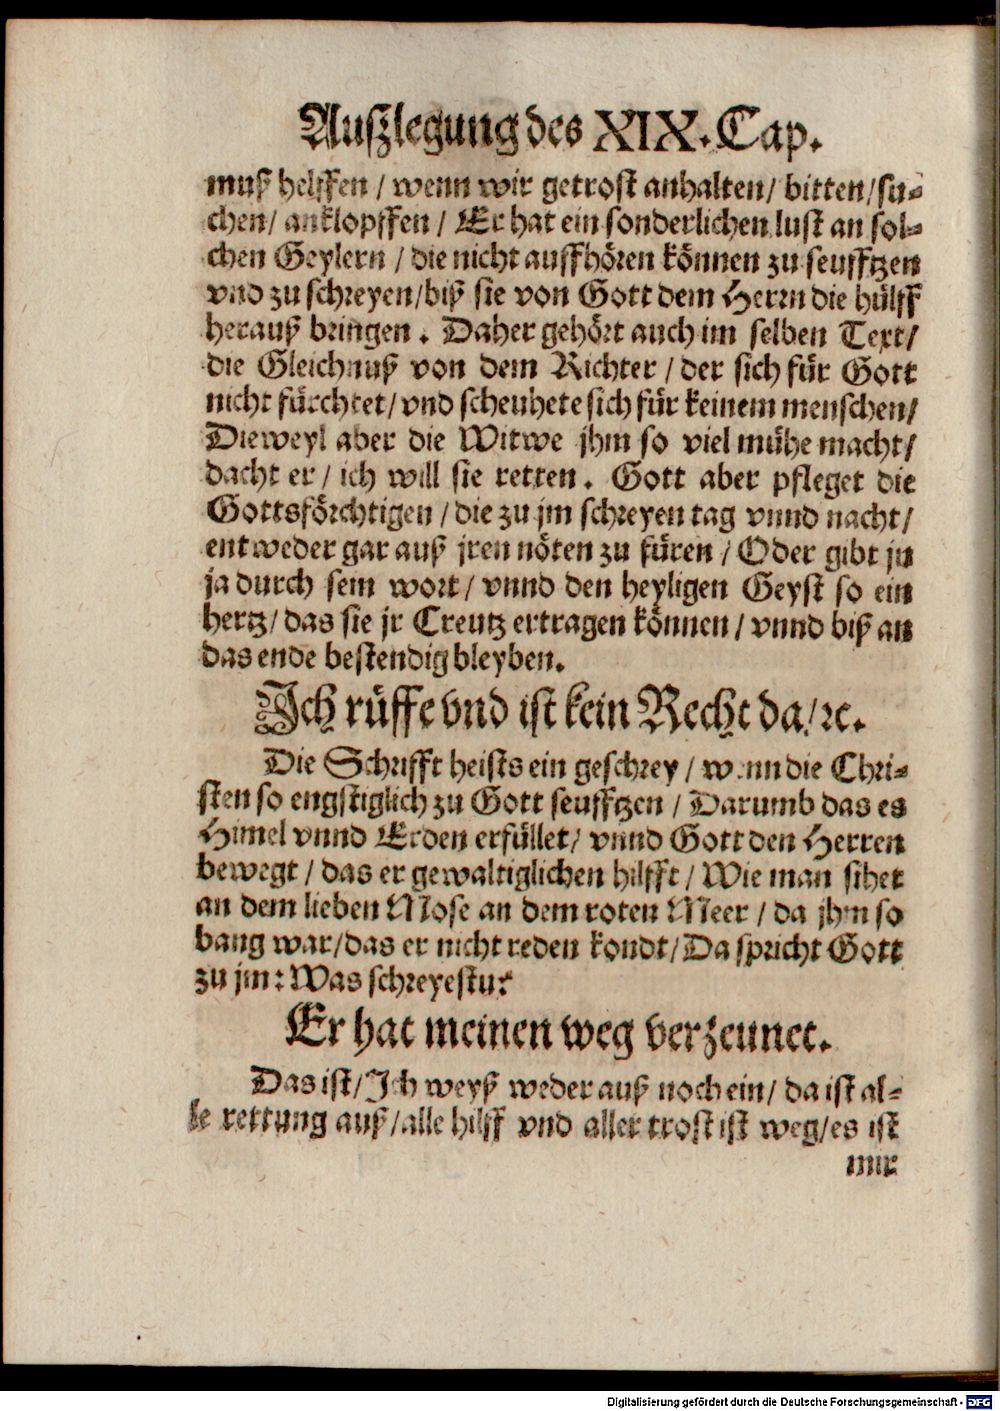 Auszlegung des XIX. Cap.
muß helffen / wenn wir getrost anhalten / bitten / su-
chen / anklopffen / Er hat ein sonderlichen lust an sol-
chen Geylern / die nicht auffhören können zu seufftzen
vnd zu schreyen / biß sie von Gott dem Herrn die hülff
herauß bringen. Daher gehört auch im selben Text /
die Gleichnuß von dem Richter / der sich für Gott
nicht fürchtet / vnd scheuhete sich für keinem menschen /
Dieweyl aber die Witwe jhm so viel mühe macht /
dacht er / ich will sie retten. Gott aber pfleget die
Gottsförchtigen / die zu jm schreyen tag vnnd nacht /
entweder gar auß jren nöten zu füren / Oder gibt jn
ja durch sein wort / vnnd den heyligen Geyst so ein
hertz / das sie jr Creutz ertragen können / vnnd biß an
das ende bestendig bleyben.
Ich rüffe vnd ist kein Recht da / ꝛc.
Die Schrifft heists ein geschrey / wenn die Chri-
sten so engstiglich zu Gott seufftzen / Darumb das es
Himel vnnd Erden erfüllet / vnnd Gott den Herren
bewegt / das er gewaltiglichen hilfft / Wie man sihet
an dem lieben Mose an dem roten Meer / da jhm so
bang war / das er nicht reden kondt / Da spricht Gott
zu jm: Was schreyestu?
Er hat meinen weg verzeunet.
Das ist / Ich weyß weder auß noch ein / da ist al-
le rettung auß / alle hilff vnd aller trost ist weg / es ist
mir
Digitalisierung gefördert durch die Deutsche Forschungsgemeinschaft - DFG